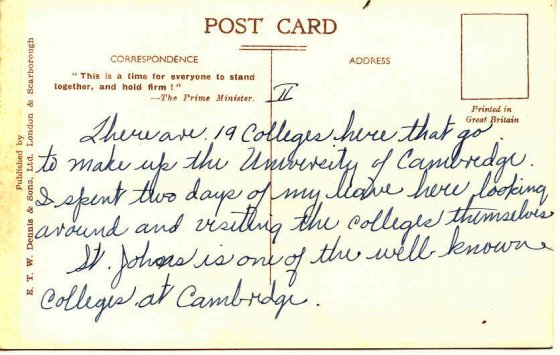 POST CARD
CORRESPONDENCE
ADDRESS
"This is a time for everyone to stand
together, and hold firm!"
—The Prime Minister.
II
Printed in
Great Britain
Published by
E. T. W. Dennis & Sons, Ltd. London & Scarborough
There are 19 Colleges here that go
to make up the University of Cambridge.
I spent two days of my leave here looking
around and visiting the colleges themselves
St. Johns is one of the well known
Colleges at Cambridge.